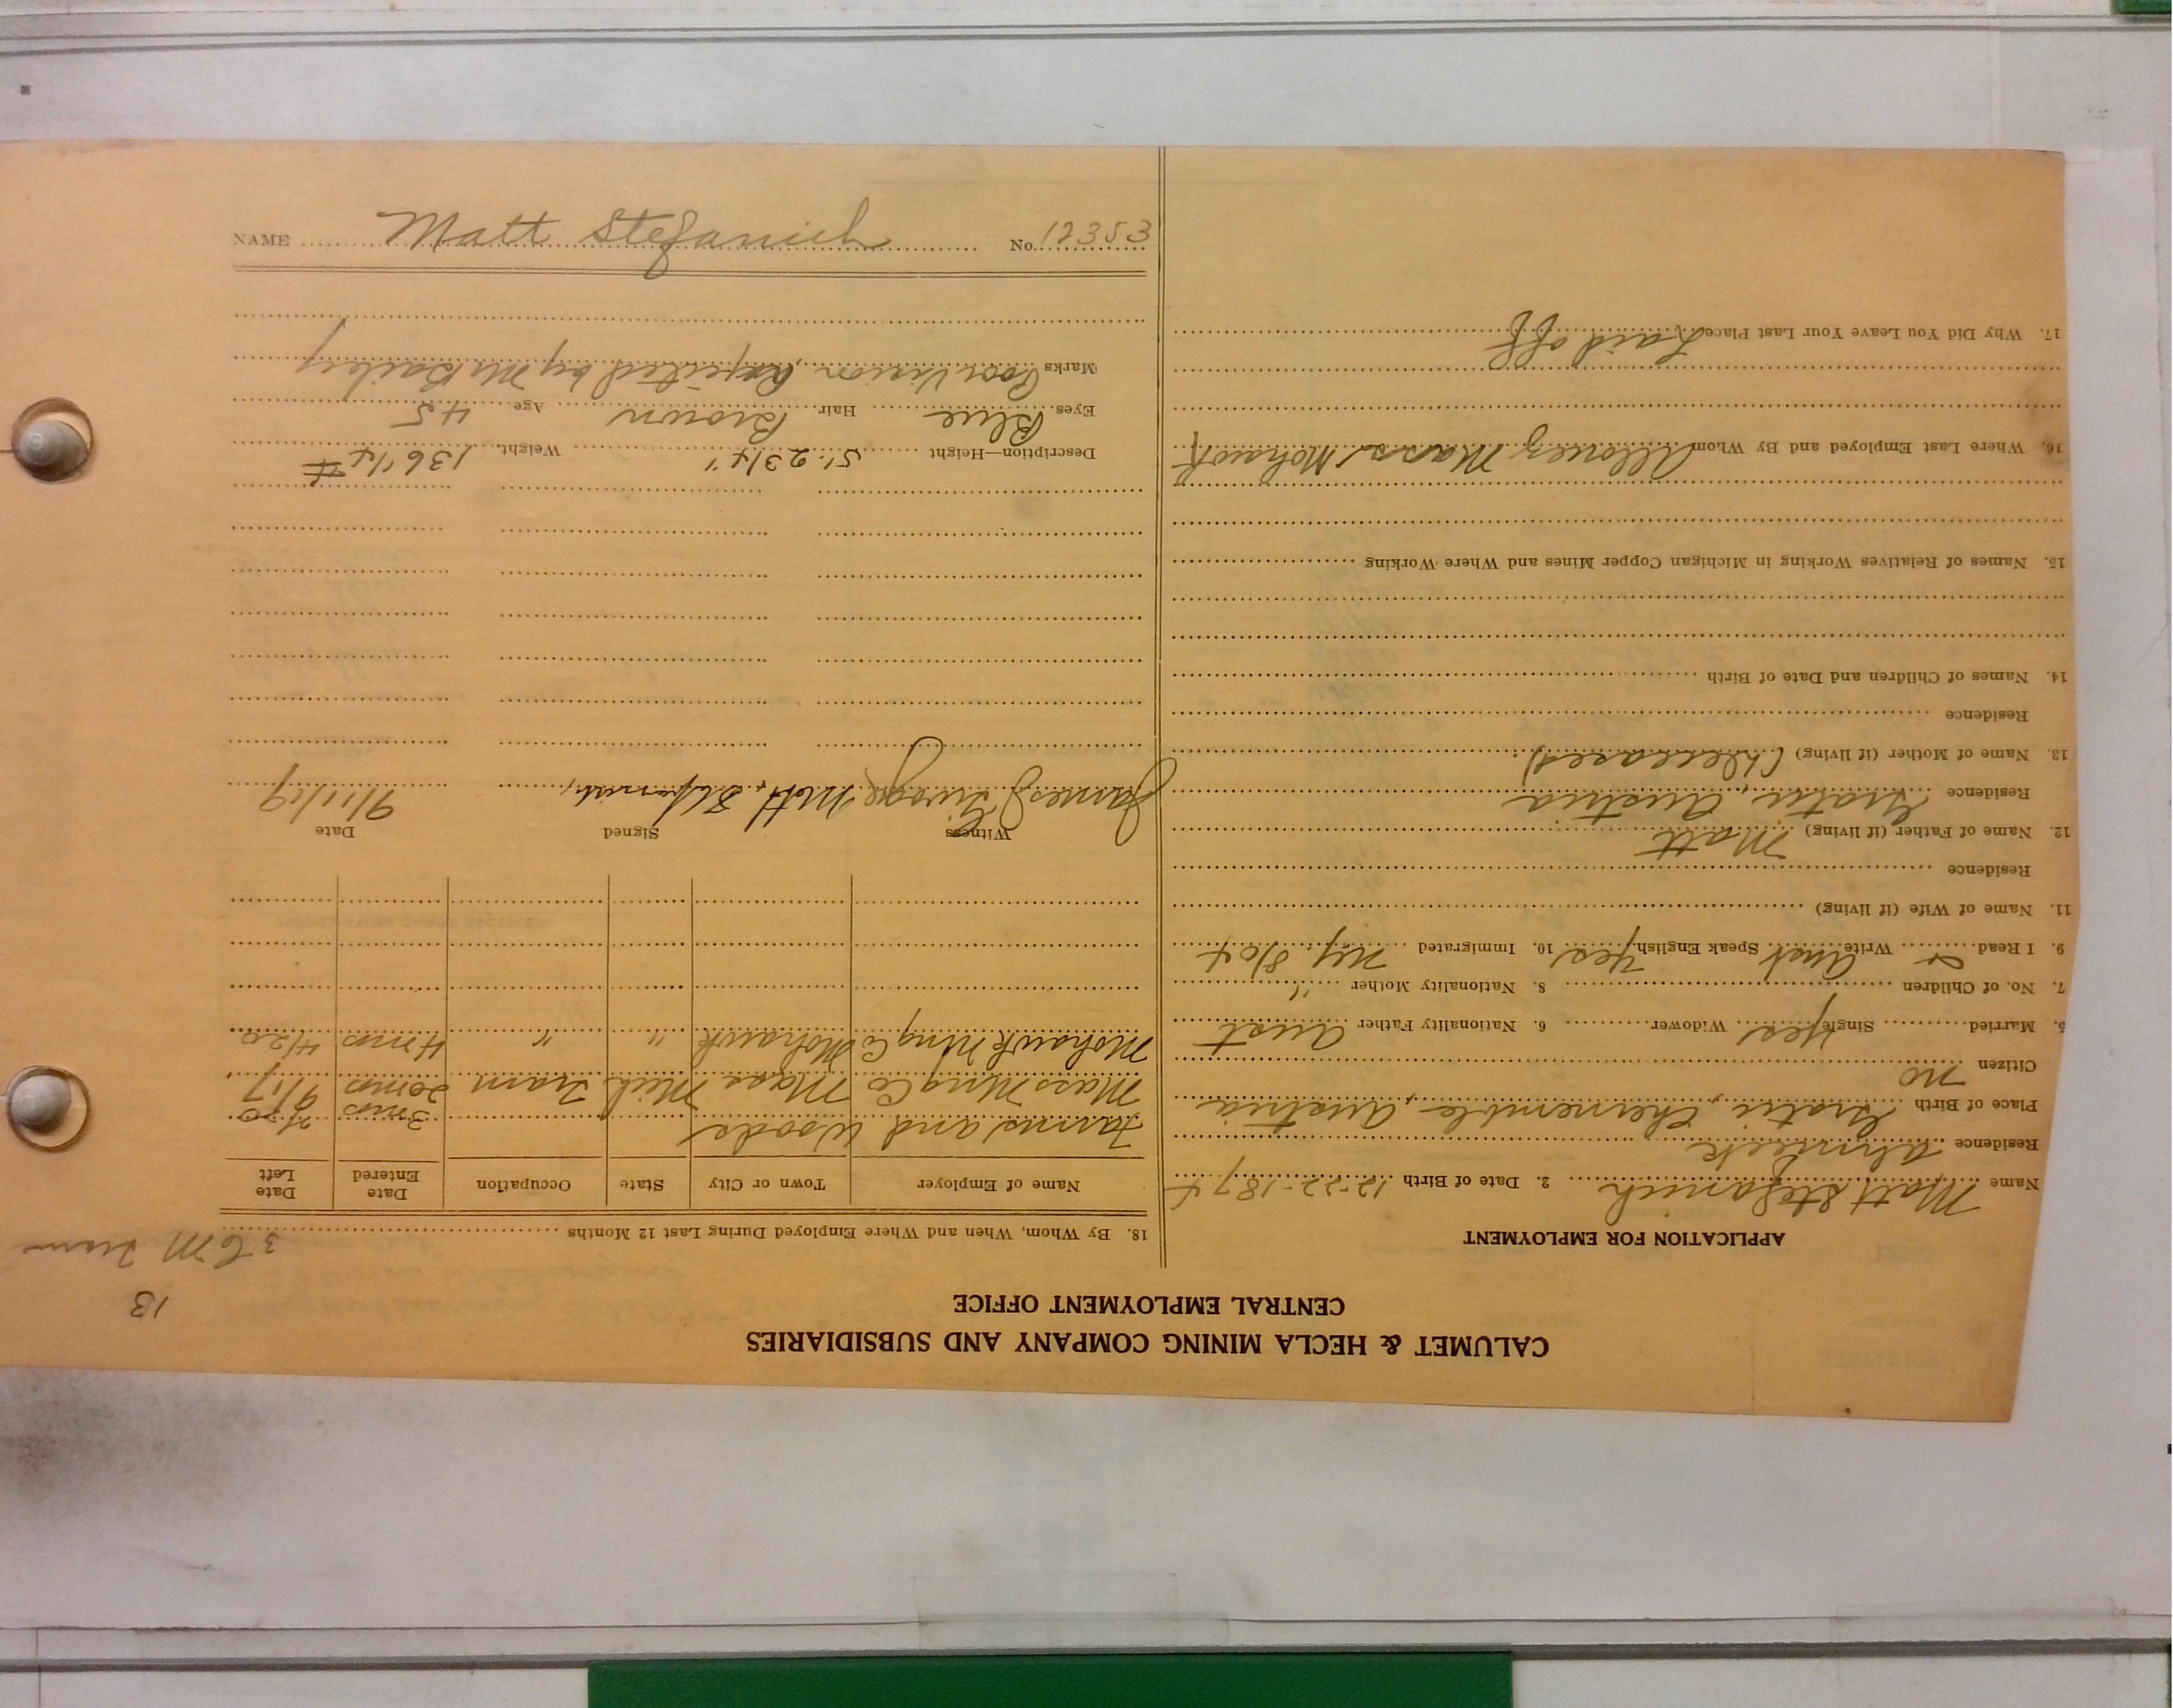 CALUMET & HECLA MINING COMPANY AND SUBSIDIARIES
CENTRAL EMPLOYMENT OFFICE
13
APPLICATION FOR EMPLOYMENT
Name Matt Stefanich 2. Date of Birth 12-22-1874
Residence Ahmeek
Place of Birth Gratic, Chernemble, Austria
Citizen no
5. Married Single Yes Widower 6. Nationality Father Aust
7. No. of Children 8. Nationality Mother "
9. I Read & Write Aust Speak English Yes 10. Immigrated N.Y. 8/04
11. Name of Wife (if living)
Residence
12. Name of Father (if living) Matt
Residence Gratic, Austria
13. Name of Mother (if living) (Deceased)
Residence
14. Names of Children and Date of Birth
15. Names of Relatives Working in Michigan Copper Mines and Where Working
16. Where Last Employed and By Whom Allouez, Mass, Mohawk
17. Why Did You Leave Your Last Place Laid off
18. By Whom, When and Where Employed During Last 12 Months 36 M Tram
Name of Employer Town or City State Occupation Date Entered Date Left
Farms and Woods 3 mos
Mass Mng Co Mass Mich Tram 20 mos 9/17
Mohawk Mng Co Mohawk " " 4 mos 4/20
Witness Signed Date
James J. Matt. 9/11/19
Description—Height 5' 2 3/4" Weight 136 1/4 #
Eyes Blue Hair Brown Age 45
Marks Poor Vision, Rejected by Mr Bailey
NAME Matt Stefanich No. 12353